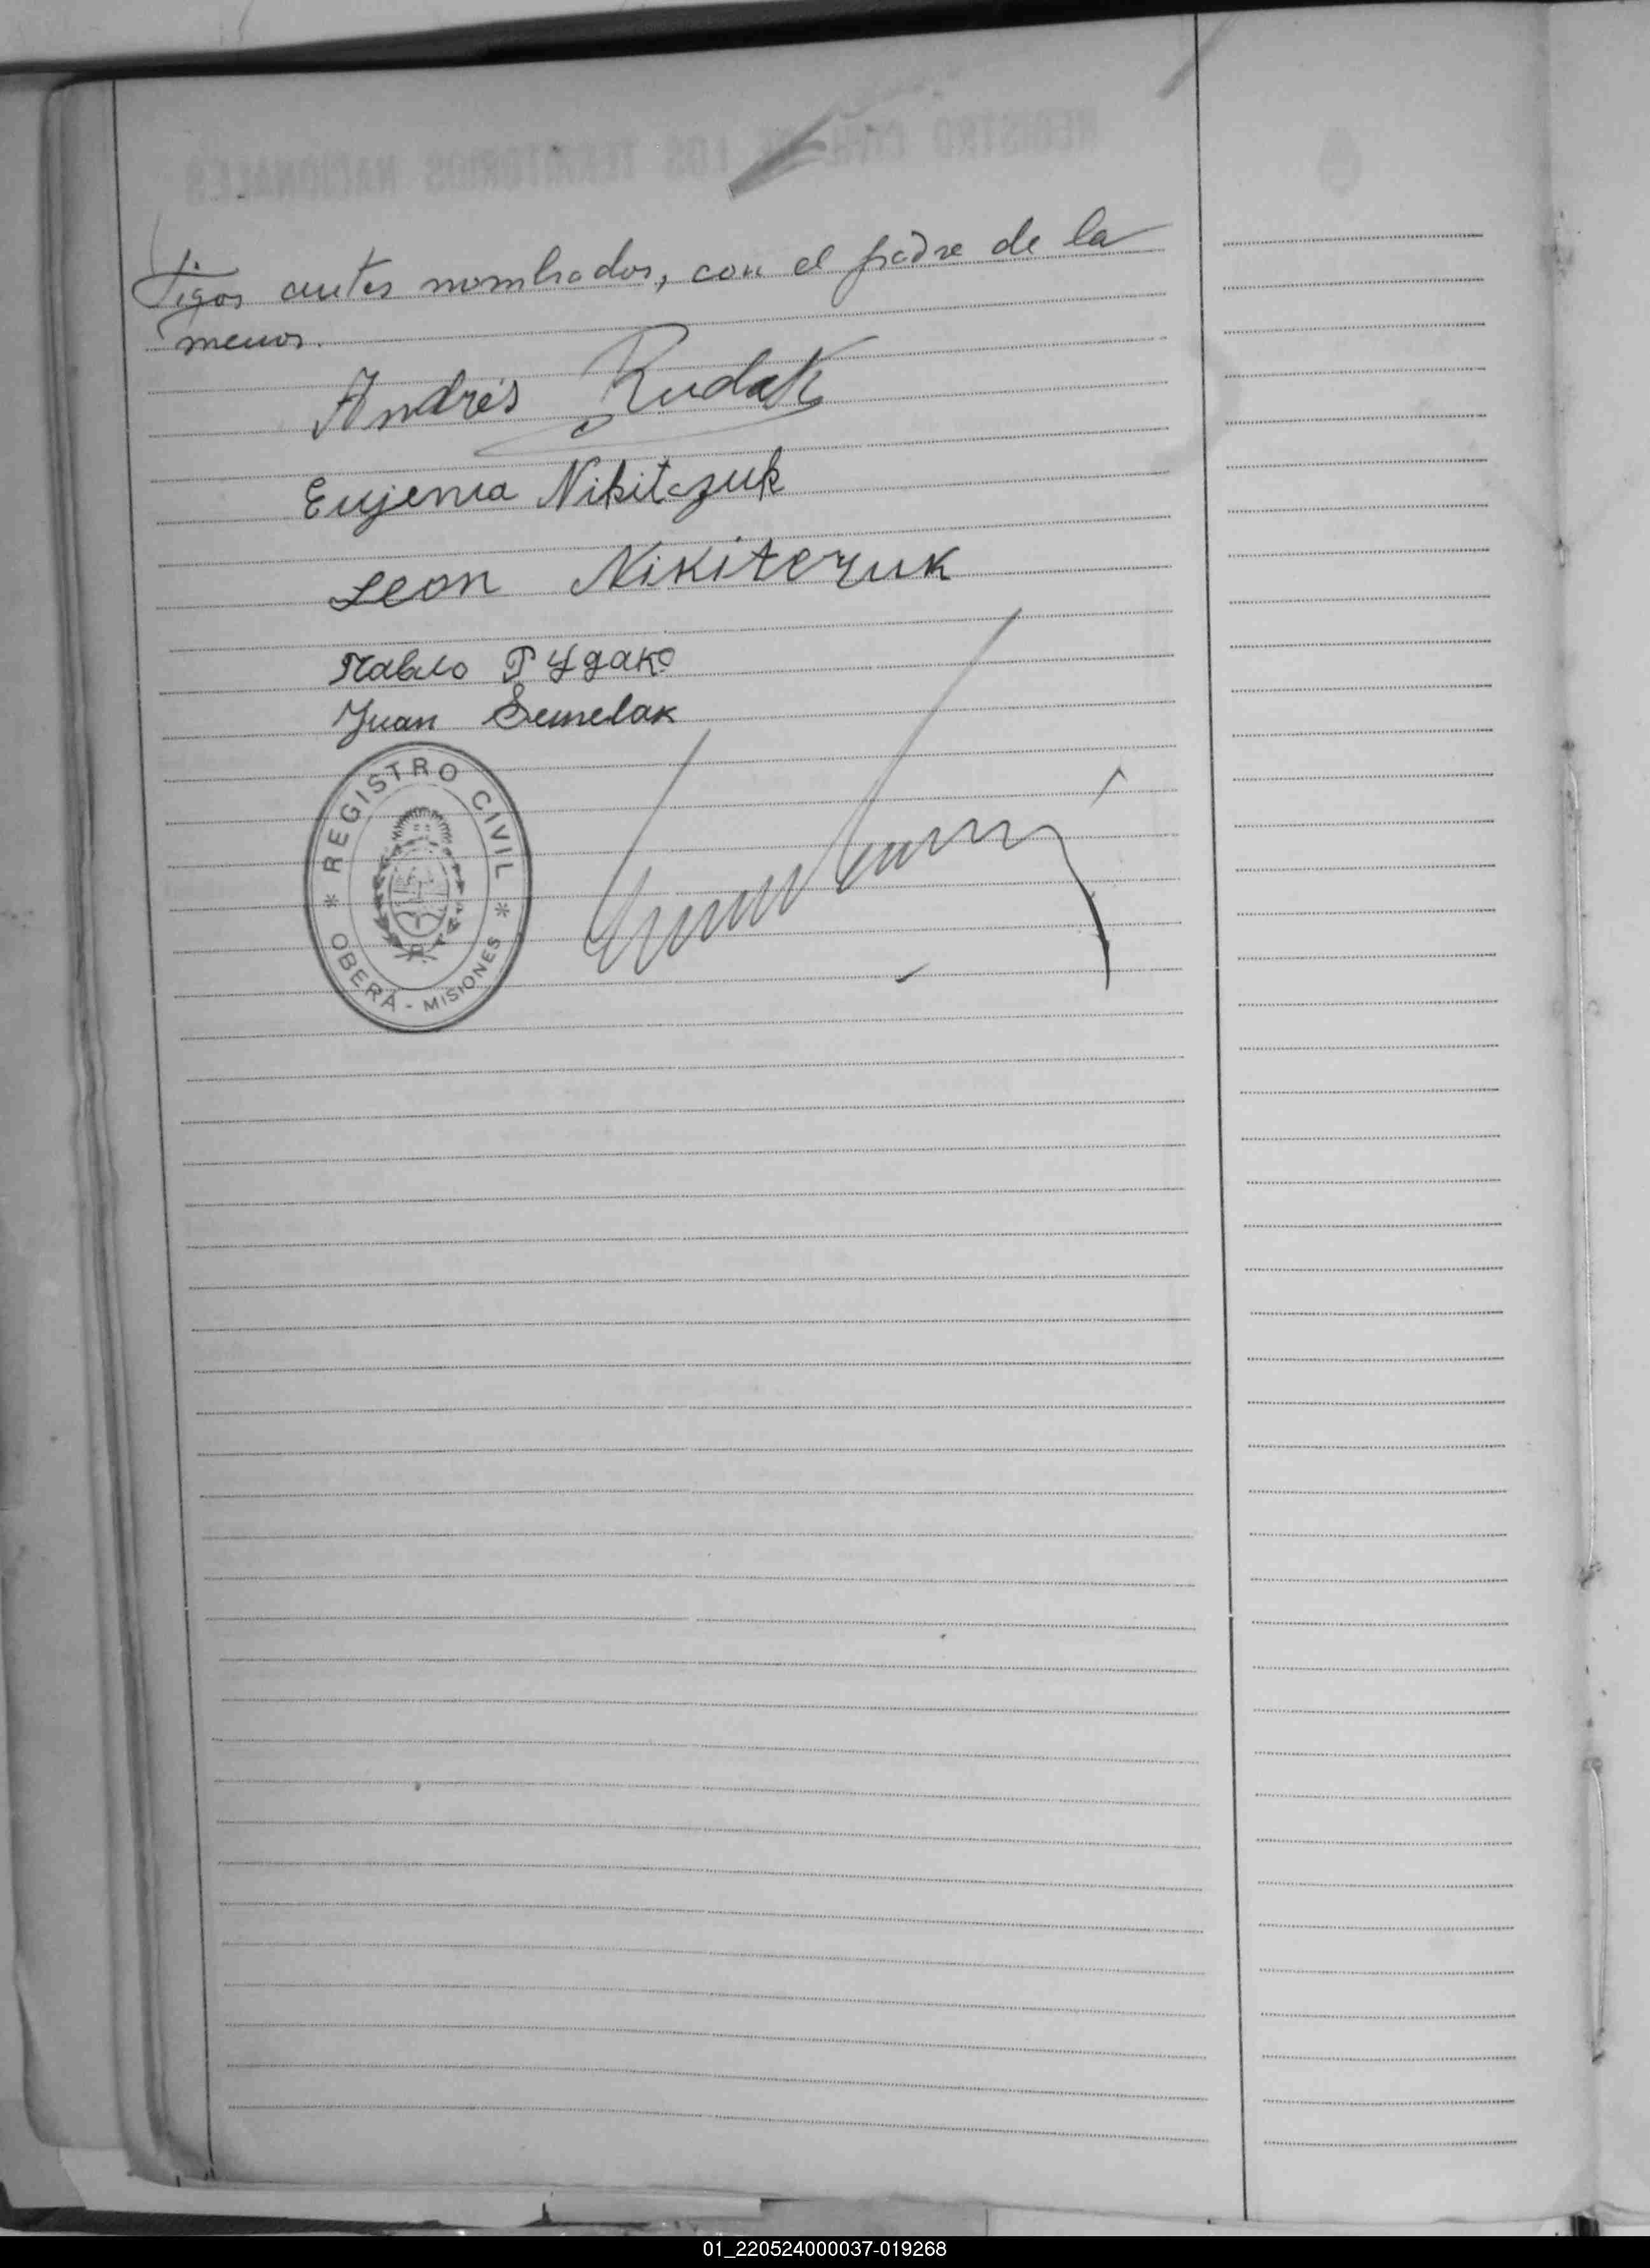 tigos antes nombrados, con el padre de la
menor.
Andrés Rudak
Eujenia Nikitczuk
Leon Nikitczuk
Павло Рудако
Juan Semelak
REGISTRO CIVIL
* *
OBERÁ - MISIONES
01_220524000037-019268